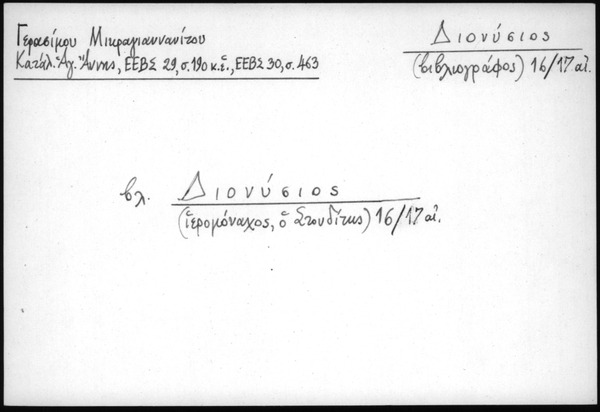 Γερασίμου Μικραγιαννανίτου
Κατάλ. Ἁγ. Ἄννης, ΕΕΒΣ 29, σ. 190 κ.ἑ., ΕΕΒΣ 30, σ. 463
Διονύσιος
(βιβλιογράφος) 16/17 αἰ.
βλ. Διονύσιος
(ἱερομόναχος, ὁ Στουδίτης) 16/17 αἰ.